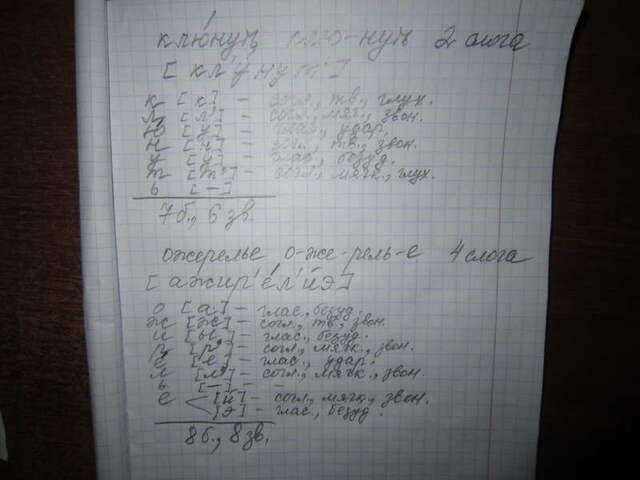 клю́нуть клю-нуть 2 слога
[ кл'у́ нут']
к [к] – согл., тв., глух.
л [л'] – согл., мяг., звон.
ю [у] – глас., удар.
н [н] – согл., тв., звон.
у [у] – глас., безуд.
т [т'] – согл., мягк., глух.
ь [–]
7б., 6 зв.
ожерелье о-же-рель-е 4 слога
[ажир'е́л'йэ]
о [а] – глас., безуд.
ж [ж] – согл., тв., звон.
и [ы] – глас., безуд.
р [р'] – согл., мягк., звон.
е [е] – глас., удар.
л [л'] – согл., мягк., звон.
ь [–] – –
е [й] – согл., мягк., звон.
[э] – глас., безуд.
8б., 8зв.